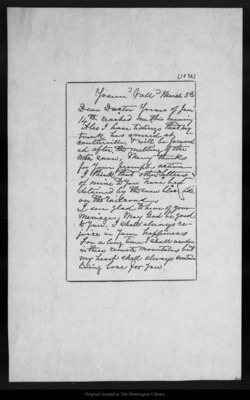 [1872]
Yosem. Vall. March 5th
Dear Doctor Yours of Jan
14th reached me this evening
Also I have tidings that my
trunk has arrived at
Coulterville, & will be forward
ed after the melting of the
snow, Many thanks
for your prompt action
I think that other letters
of mine to you have been
detained by the snow blockade
on the railroad.
I am glad to hear of your
Marriage, May God be good
to you. I shall always re-
joice in your happiness
For a long time I shall wander
in these remote mountains but
my heart shall always contain
living love for you.
Original located at The Huntington Library